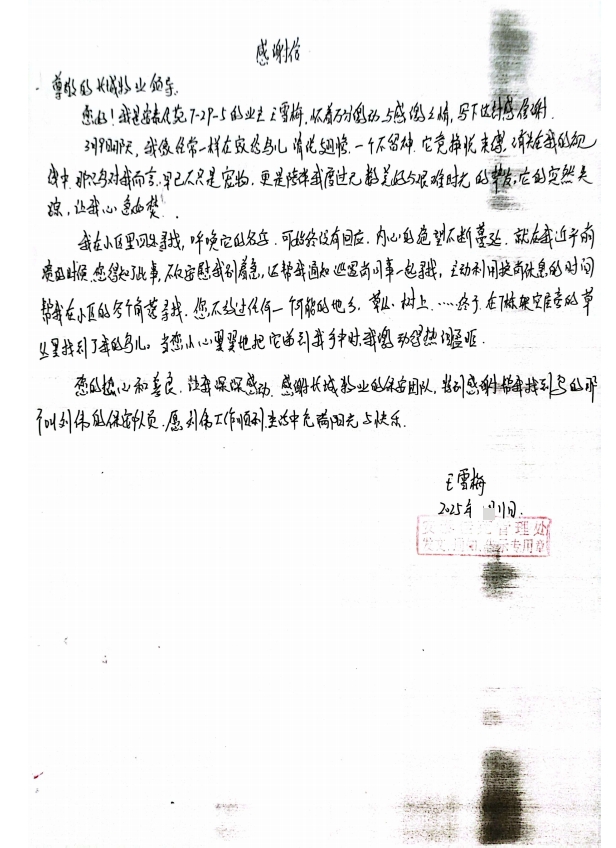 感谢信
尊敬的长城物业领导:
您好!我是安春苑7-29-5的业主王雪梅,怀着万分激动与感激之情,写下这封感谢
3月9日那天,我像往常一样在家给鸟儿清洗翅膀,一个不留神,它竟挣脱束缚,消失在我的视
线中,那只鸟对我而言,早已不只是宠物,更是陪伴我度过无数美好与艰难时光的挚友,它的突然失
踪,让我心急如焚.
我在小区里四处寻找,呼唤它的名字,可始终没有回应,内心的绝望不断蔓延,就在我近乎崩
溃的时候,您得知了此事,不仅安慰我别着急,还帮我通知巡逻岗同事一起寻找,主动利用换岗休息的时间
帮我在小区的各个角落寻找,您不放过任何一个可能的地方,草丛、树上……终于,在7栋架空层旁的草
丛里找到了我的鸟儿。当您小心翼翼地把它递到我手中时,我激动得热泪盈眶.
您的热心和善良,让我深深感动,感谢长城物业的保安团队,特别感谢帮我找到鸟的那
个叫刘伟的保安队员,愿刘伟工作顺利,生活中充满阳光与快乐.
王雪梅
2025年 月11日.
管理处
专用章